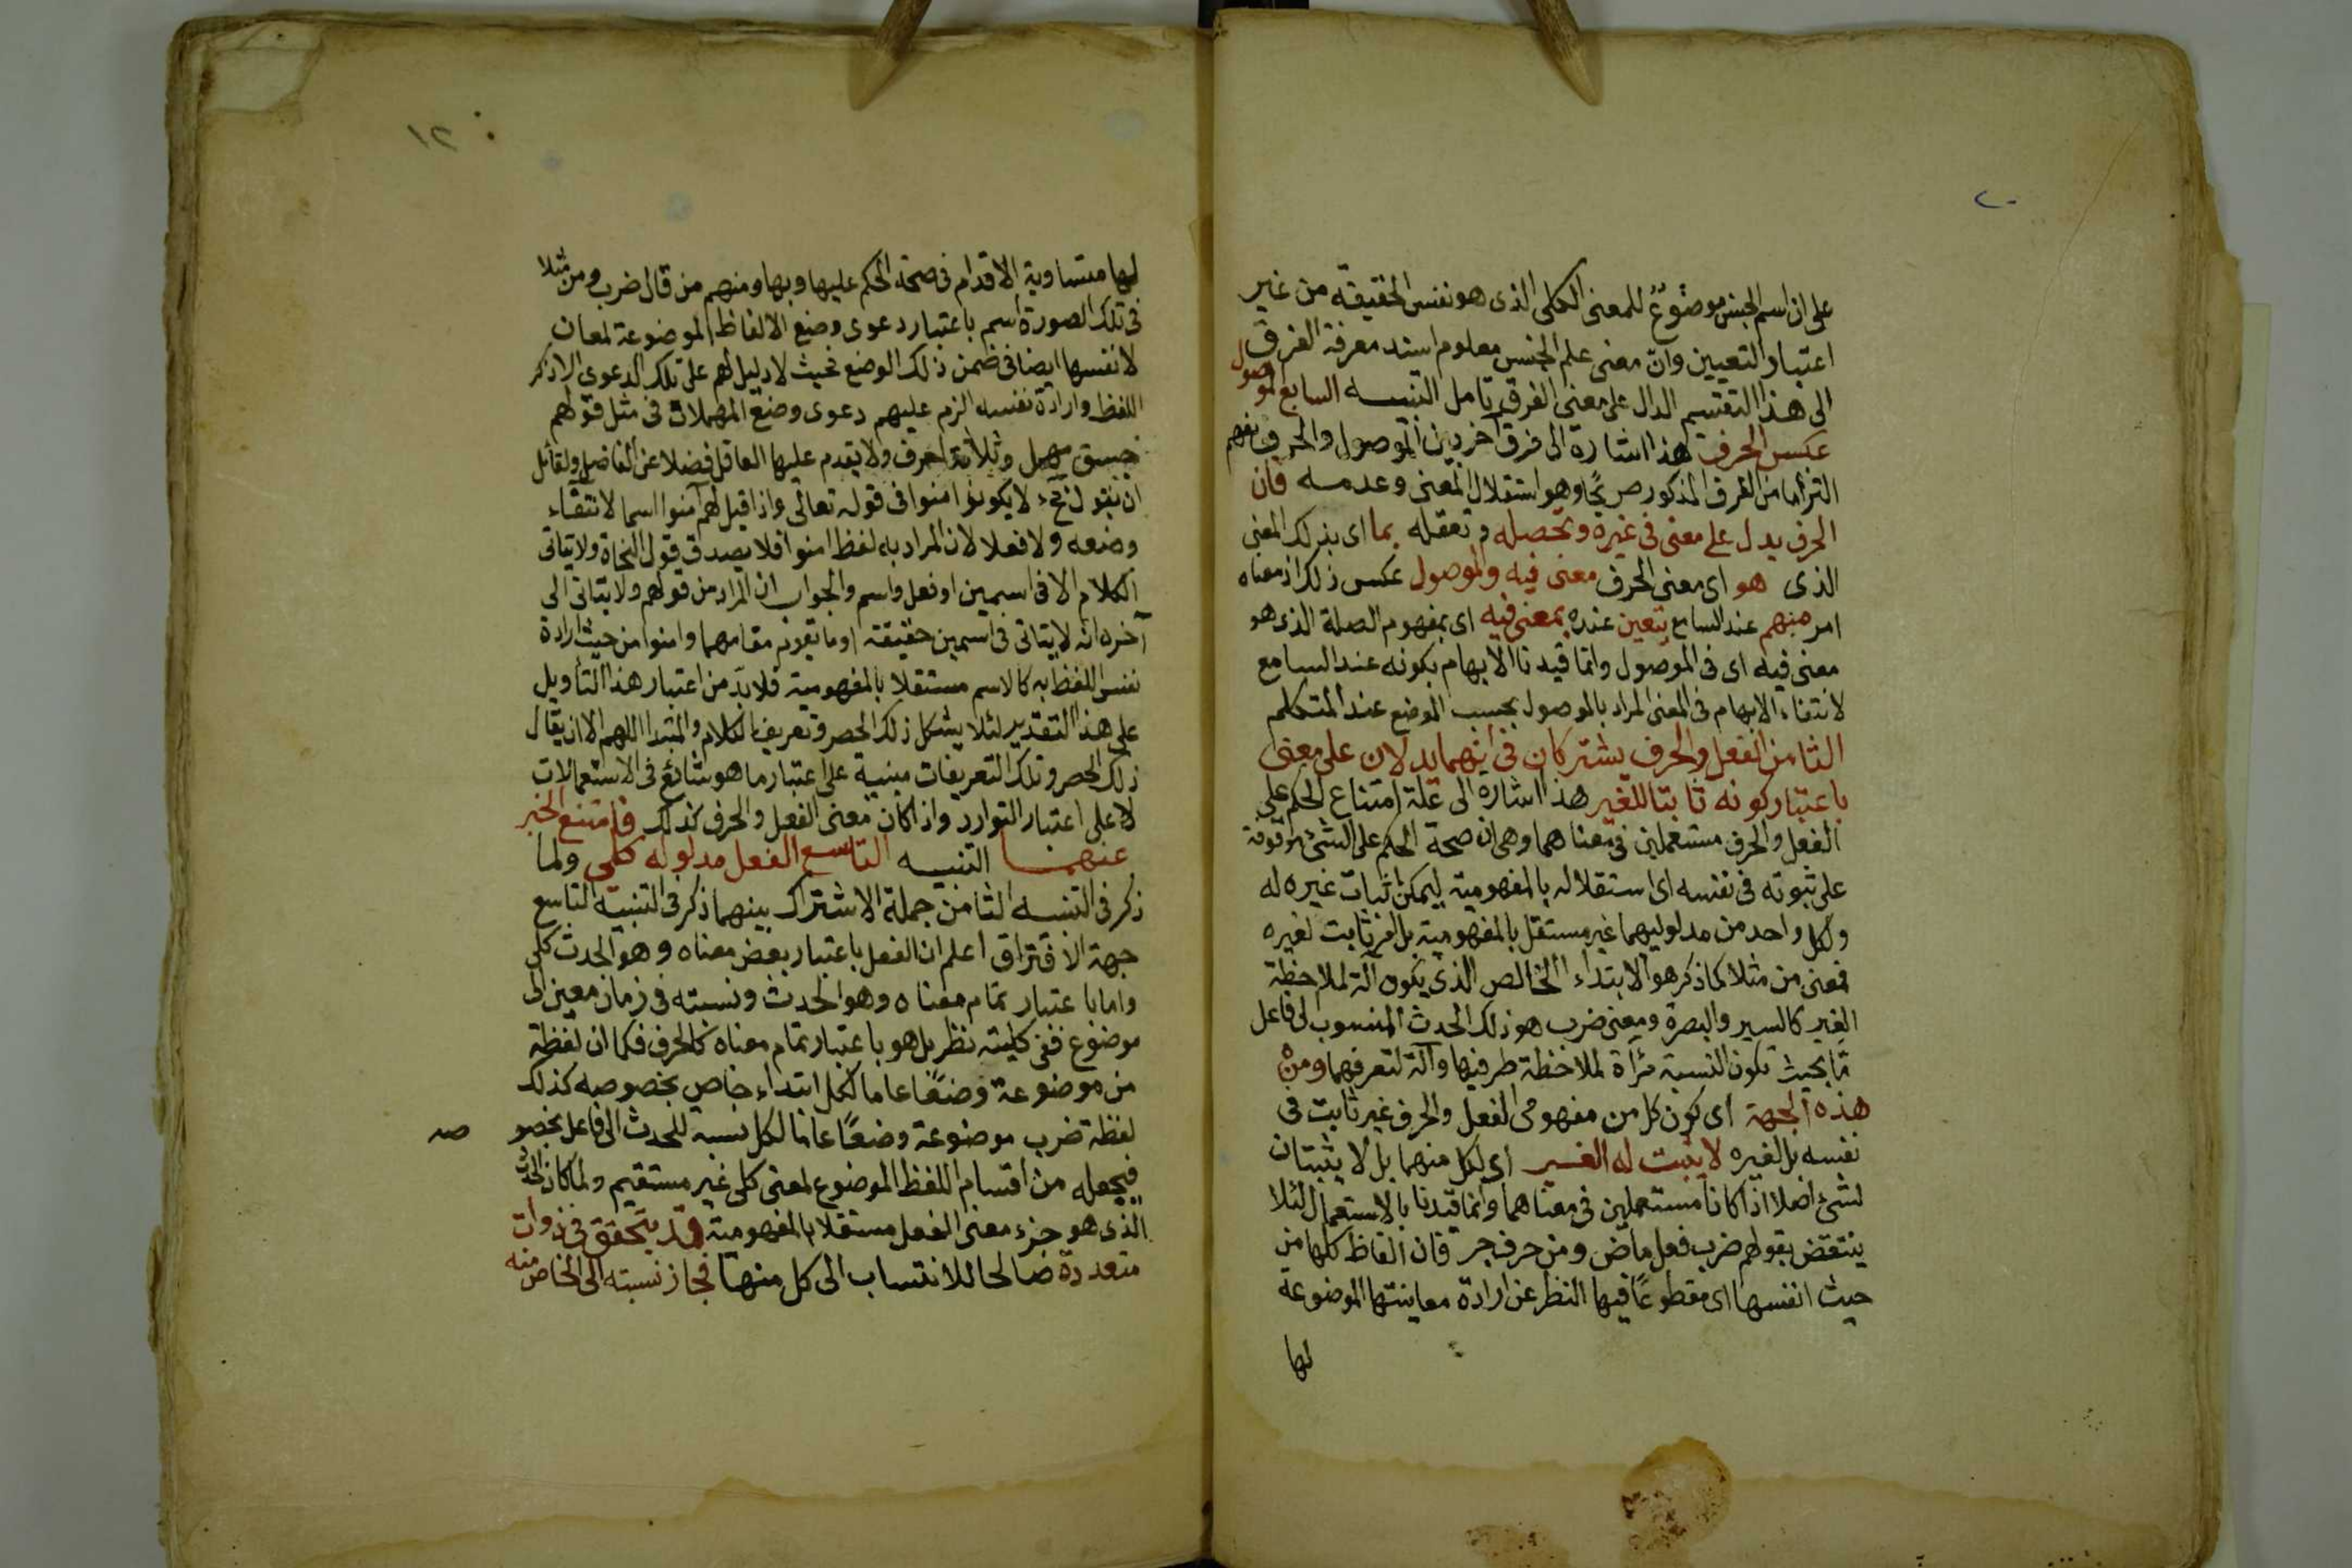 ٢٠
على ان اسم الجنس موضوع للمعنى الكلى الذى هو نفس الحقيقة من غير
اعتبار التعيين وان معنى علم الجنس معلوم اسند معرفة الفرق
الى هذا التقسيم الدال على معنى الفرق تامل التنبيه السابع الموصول
عكس الحرف هذا اشارة الى فرق آخر بين الموصول والحرف يفهم
التزاما من الفرق المذكور صريحًا وهو استقلال المعنى وعدمه فان
الحرف يدل على معنى فى غيره وتحصله وتعقله بما اى بذلك المعنى
الذى هو اى معنى الحرف معنى فيه والموصول عكس ذلك اذ معناه
امر مبهم عند السامع يتعين عنده بمعنى فيه اى بمفهوم الصلة الذى هو
معنى فيه اى فى الموصول وانما قيدنا الابهام بكونه عند السامع
لانتفاء الابهام فى المعنى المراد بالموصول بحسب الوضع عند المتكلم
الثامن الفعل والحرف يشتركان فى انهما يدلان على معنى
باعتبار كونه ثابتا للغير هذا اشارة الى علة امتناع الحكم على
الفعل والحرف مستعملين فى معناهما وهى ان صحة الحكم على الشئ موقوفة
على ثبوته فى نفسه اى استقلاله بالمفهومية ليمكن اثبات غيره له
وكل واحد من مدلوليهما غير مستقل بالمفهومية بل امر ثابت لغيره
فمعنى من مثلا كما ذكر هو الابتداء الخالص الذى يكون آلة لملاحظة
الغير كالسير والبصرة ومعنى ضرب هو ذلك الحدث المنسوب الى فاعل
ما بحيث تكون النسبة مرآة لملاحظة طرفيها وآلة لتعرفهما ومن
هذه الجهة اى كون كل من مفهومى الفعل والحرف غير ثابت فى
نفسه بل لغيره لا يثبت له الغير اى لكل منهما بل لا يثبتان
لشئ اصلا اذا كانا مستعملين فى معناهما وانما قيدنا بالاستعمال لئلا
ينتقض بقولهم ضرب فعل ماض ومن حرف جر فان الفاظ كلها من
حيث انفسها اى مقطوعًا فيها النظر عن ارادة معاينتها الموضوعة
لها
١٢
لها متساوية الاقدام فى صحة الحكم عليها وبها ومنهم من قال ضرب ومن مثلا
فى تلك الصورة اسم باعتبار دعوى وضع الالفاظ الموضوعة لمعان
لانفسها ايضا فى ضمن ذلك الوضع بحيث لا دليل لهم على تلك الدعوى الا ذكر
اللفظ وارادة نفسه الزم عليهم دعوى وضع المهملات فى مثل قولهم
جسق مهمل وثلاثة احرف ولا يقدم عليها العاقل فضلا عن الفاضل ولقائل
ان يقول لا يكون امنوا فى قوله تعالى واذا قيل لهم آمنوا اسما لانتفاء
وضعه ولا فعلا لان المراد به لفظ امنوا فلا يصدق قول النحاة ولا يتاتى
الكلام الا فى اسمين او فعل واسم والجواب ان المراد من قولهم ولا يتاتى الى
آخره انه لا يتاتى فى اسمين حقيقة او ما يقوم مقامهما وامنوا من حيث ارادة
نفس اللفظ به كالاسم مستقلا بالمفهومية فلا بدّ من اعتبار هذا التأويل
على هذا التقدير لئلا يشكل ذلك الحصر وتعريف الكلام والمبتدا اللهم الا ان يقال
ذلك الحصر وتلك التعريفات مبنية على اعتبار ما هو شائع فى الاستعمالات
لا على اعتبار النوارد واذا كان معنى الفعل والحرف كذلك فامتنع الخبر
عنهما التنبيه التاسع الفعل مدلوله كلى ولما
ذكر فى التنبيه الثامن جملة الاشتراك بينهما ذكر فى التنبيه التاسع
جهة الافتراق اعلم ان الفعل باعتبار بعض معناه وهو الحدث كلى
واما باعتبار تمام معناه وهو الحدث ونسبته فى زمان معين الى
موضوع ففى كليته نظر بل هو باعتبار تمام معناه كالحرف فكما ان لفظة
من موضوعة وضعًا عاما لكل ابتداء خاص بخصوصه كذلك
لفظة ضرب موضوعة وضعًا عاما لكل نسبه للحدث الى فاعل بخصو
صه
فيجعله من اقسام اللفظ الموضوع لمعنى كلى غير مستقيم ولما كان الحدث
الذى هو جزء معنى الفعل مستقلا بالمفهومية قد يتحقق فى ذوات
متعددة صالحا للانتساب الى كل منها فجاز نسبته الى الخاص منه